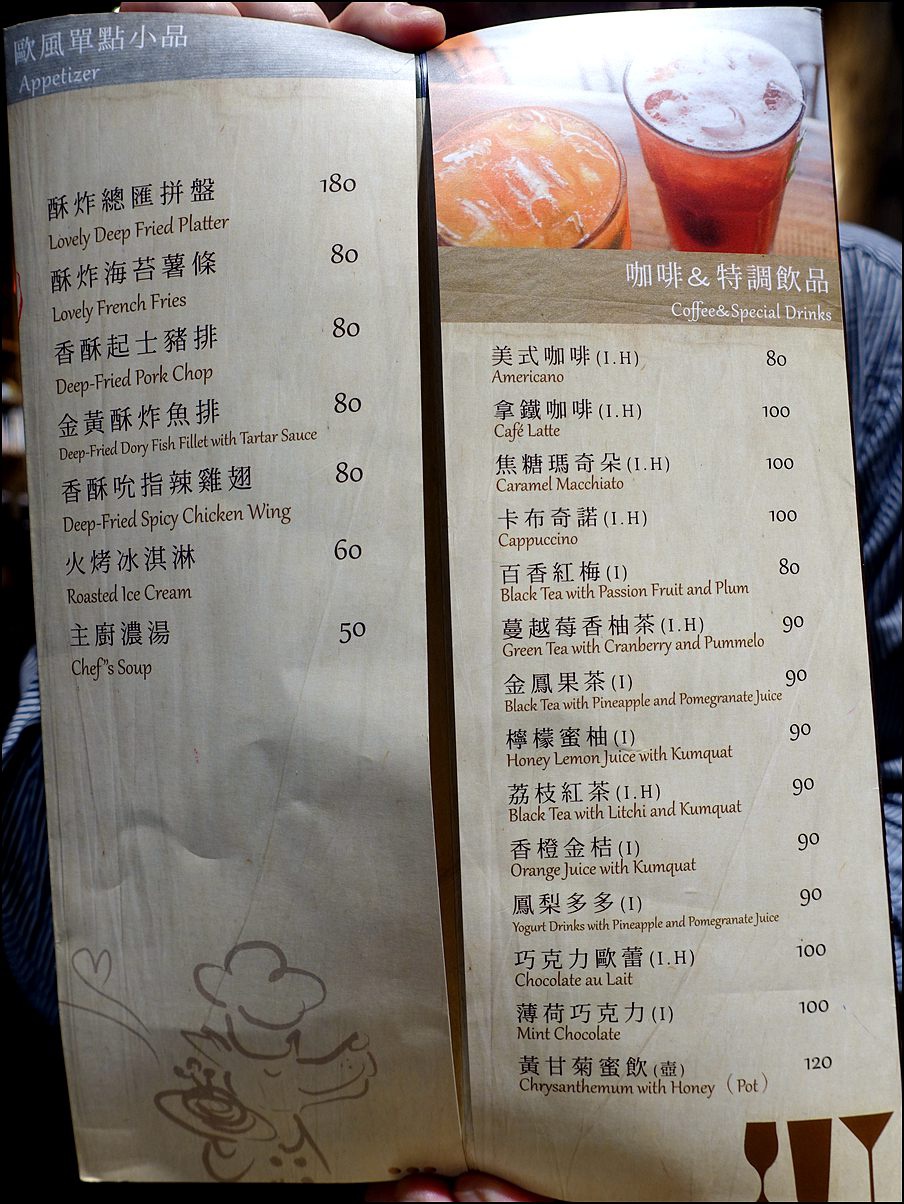 歐風單點小品
Appetizer
酥炸總匯拼盤 180
Lovely Deep Fried Platter
酥炸海苔薯條 80
Lovely French Fries
香酥起士豬排 80
Deep-Fried Pork Chop
金黃酥炸魚排 80
Deep-Fried Dory Fish Fillet with Tartar Sauce
香酥吮指辣雞翅 80
Deep-Fried Spicy Chicken Wing
火烤冰淇淋 60
Roasted Ice Cream
主廚濃湯 50
Chef"s Soup
咖啡&特調飲品
Coffee&Special Drinks
美式咖啡(I.H) 80
Americano
拿鐵咖啡(I.H) 100
Café Latte
焦糖瑪奇朵(I.H) 100
Caramel Macchiato
卡布奇諾(I.H) 100
Cappuccino
百香紅梅(I) 80
Black Tea with Passion Fruit and Plum
蔓越莓香柚茶(I.H) 90
Green Tea with Cranberry and Pummelo
金鳳果茶(I) 90
Black Tea with Pineapple and Pomegranate Juice
檸檬蜜柚(I) 90
Honey Lemon Juice with Kumquat
荔枝紅茶(I.H) 90
Black Tea with Litchi and Kumquat
香橙金桔(I) 90
Orange Juice with Kumquat
鳳梨多多(I) 90
Yogurt Drinks with Pineapple and Pomegranate Juice
巧克力歐蕾(I.H) 100
Chocolate au Lait
薄荷巧克力(I) 100
Mint Chocolate
黃甘菊蜜飲(壺) 120
Chrysanthemum with Honey（Pot）